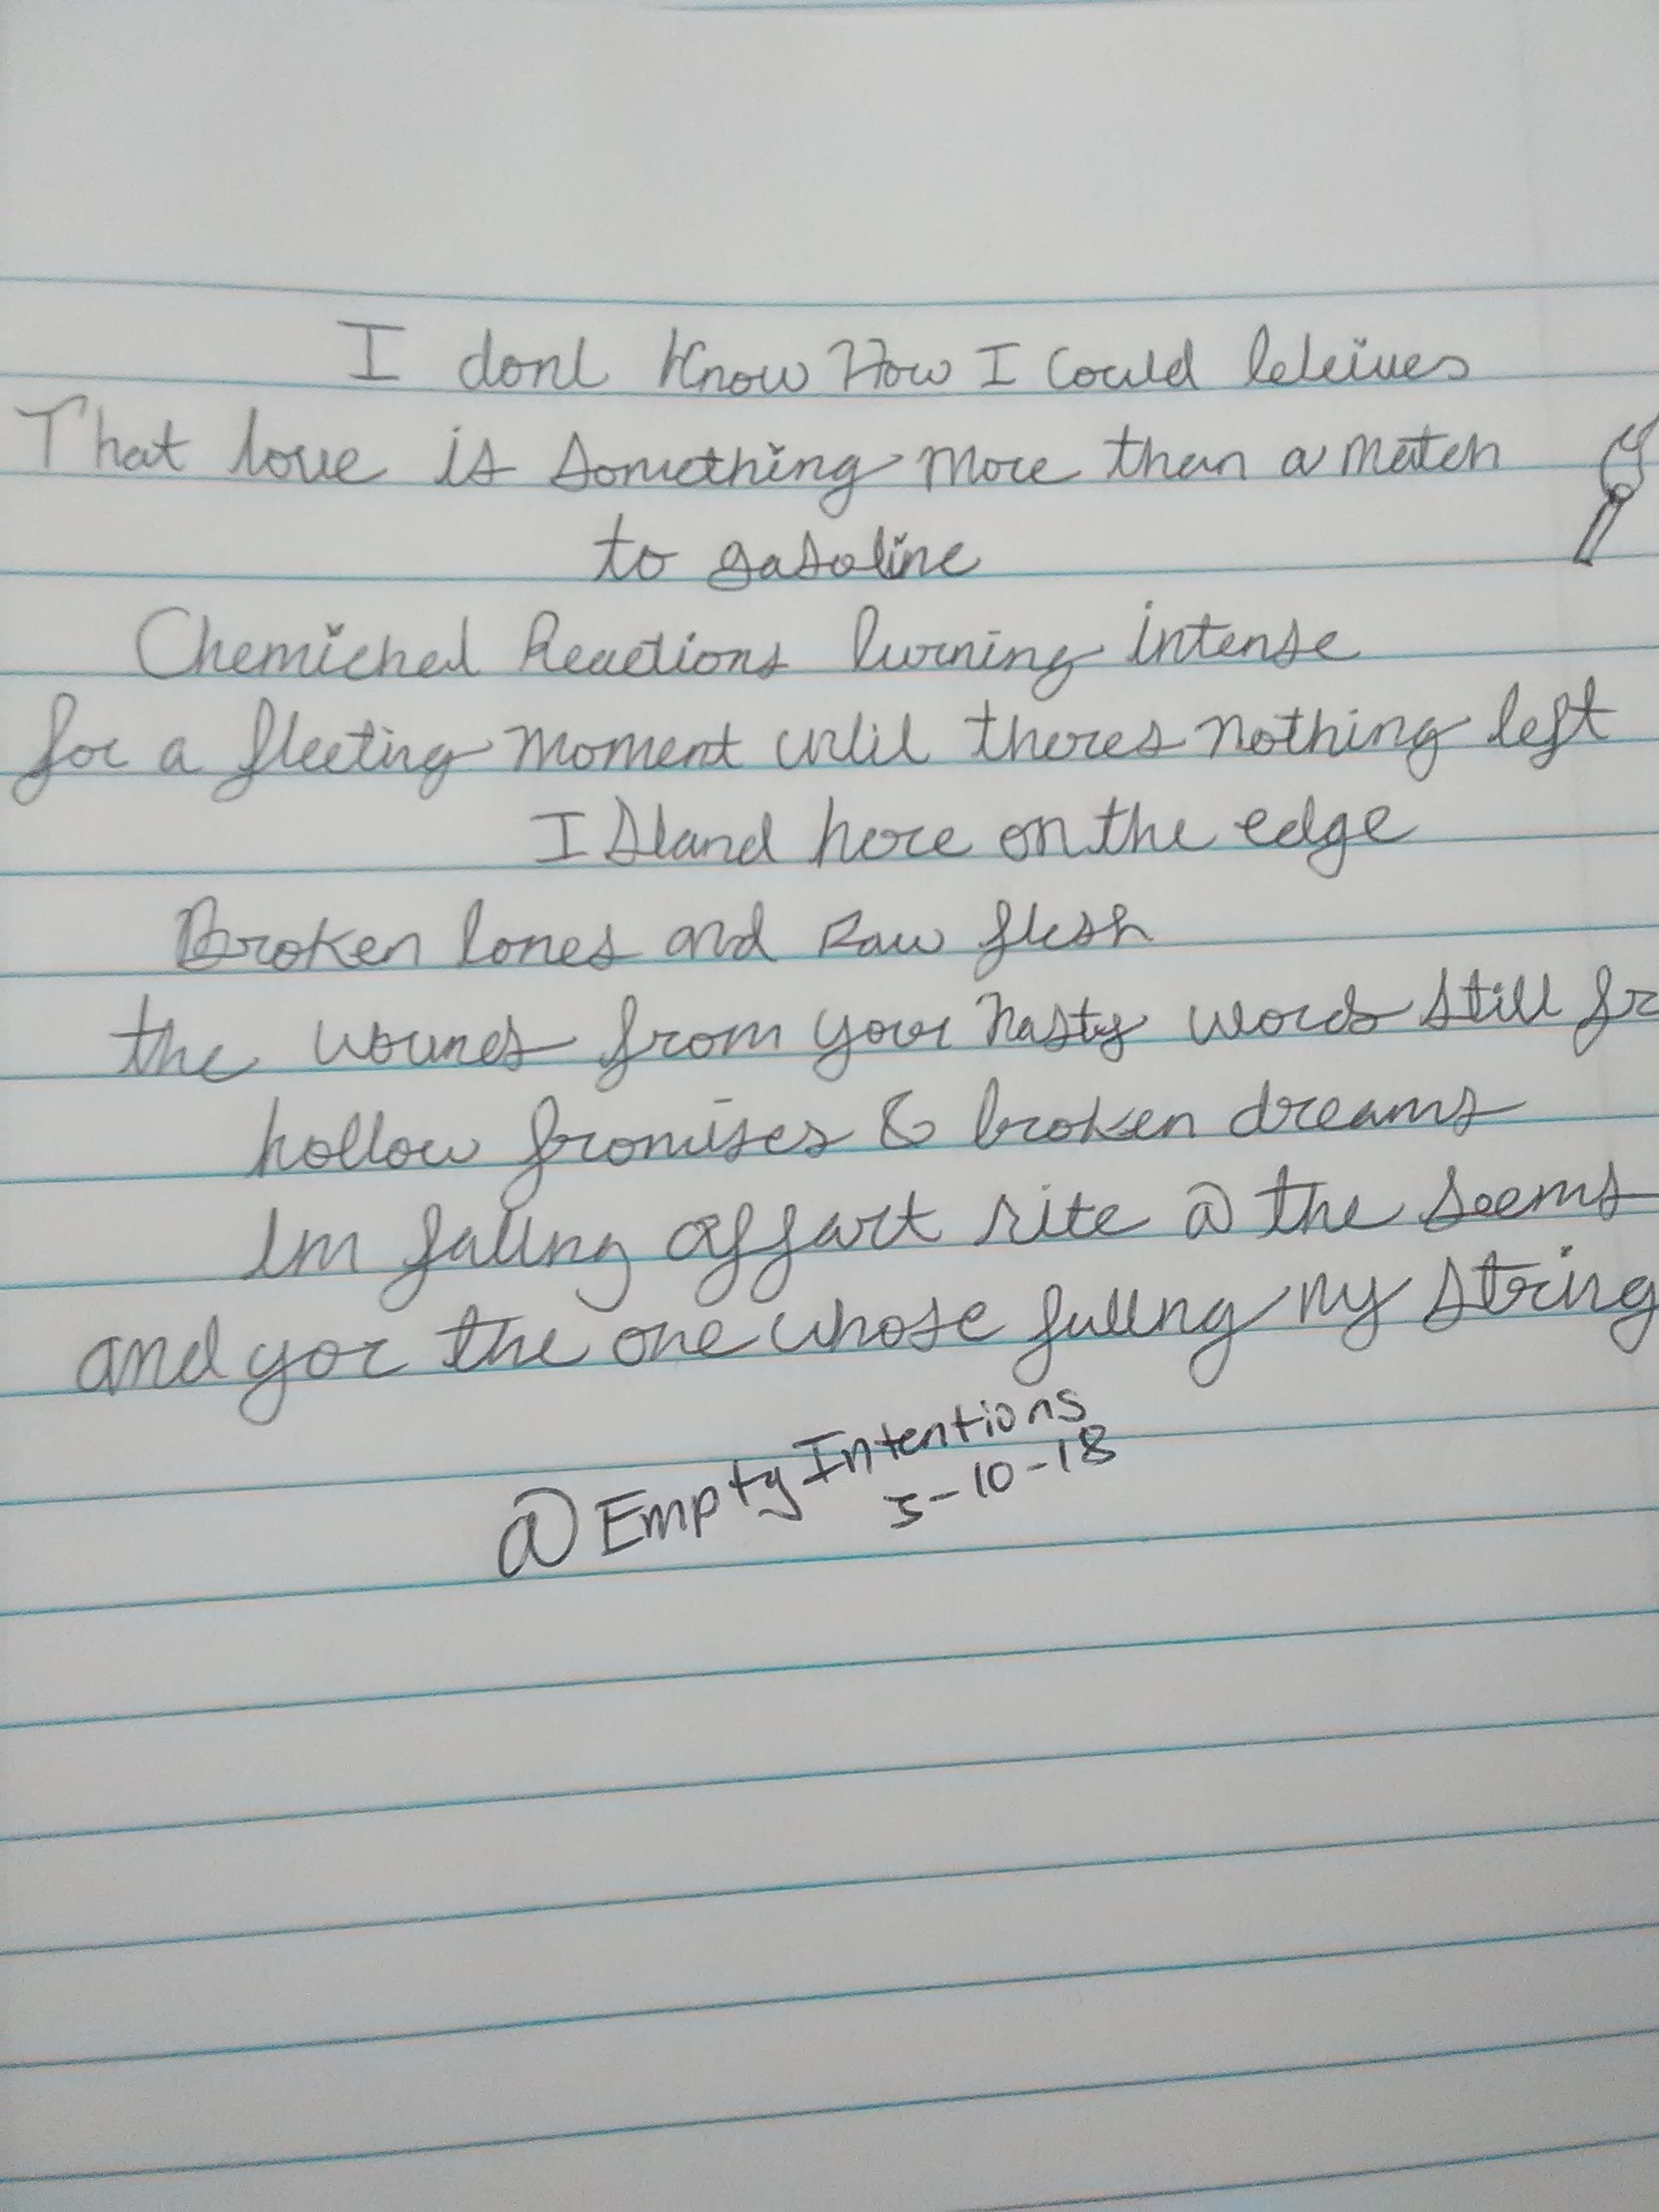 I dont Know How I Could beleives
That love is Something more than a match
to gasoline
Chemichal Reactions burning intense
for a fleeting moment until theres nothing left
I Stand here on the edge
Broken bones and Raw flesh
the wounds from your nasty words still fr
hollow promises & broken dreams
Im falling appart rite @ the seems
and yor the one whose pulling my string
@EmptyIntentions
5-10-18